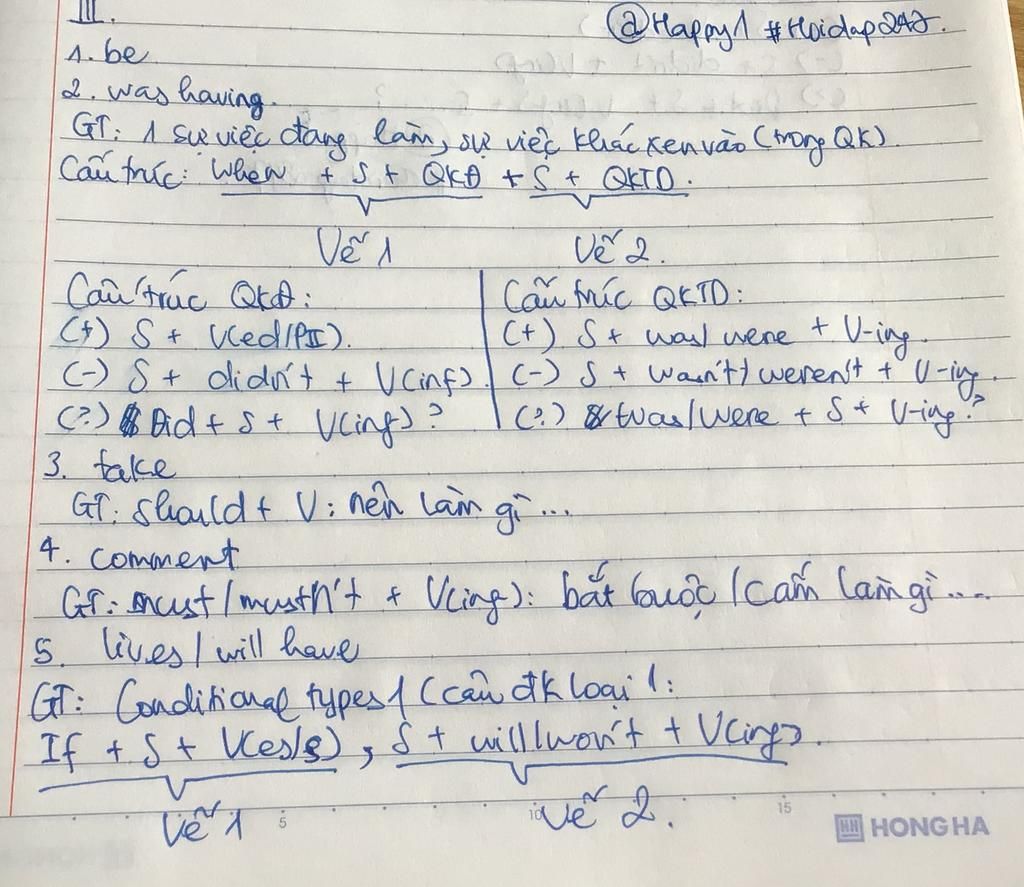 III.
@Happy1 #Hoidap247.
1. be
2. was having.
GT: 1 sự việc đang làm, sự việc khác xen vào (trong QK).
Cấu trúc: When + S + QKĐ + S + QKTD.
Vế 1 Vế 2.
Cấu trúc QKĐ:
(+) S + V(ed/PII).
(-) S + didn't + V(inf).
(?) Did + S + V(inf)?
Cấu trúc QKTD:
(+) S + was/were + V-ing.
(-) S + wasn't/weren't + V-ing.
(?) Was/Were + S + V-ing?
3. take
GT: should + V: nên làm gì...
4. comment
GT: must/mustn't + V(inf): bắt buộc/cấm làm gì....
5. lives/will have
GT: Conditional types 1 (câu đk loại 1:
If + S + V(es/s), S + will/won't + V(inf).
Vế 1 Vế 2.
5 10 15
HH HONG HA